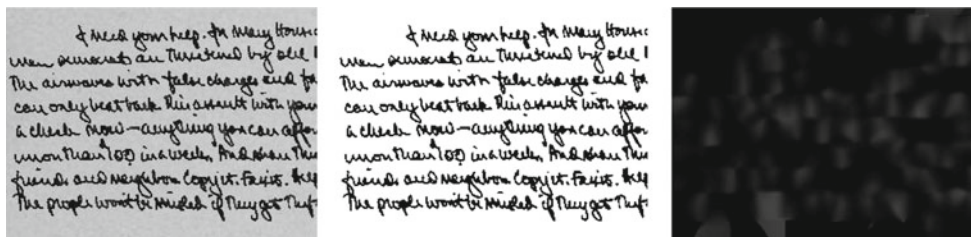 I need your help. In Many House
are threatened by
The airwaves with false charges and
can only beat back this assault with your
a check now—anything you can affor
than $100 in a week. And show this
friends and neighbors Copy it. Fax it. Help
The people won't be misled if They get The
I need your help. In Many House
are threatened by
The airwaves with false charges and
can only beat back this assault with your
a check now—anything you can affor
than $100 in a week. And show this
friends and neighbors Copy it. Fax it. Help
The people won't be misled if They get The